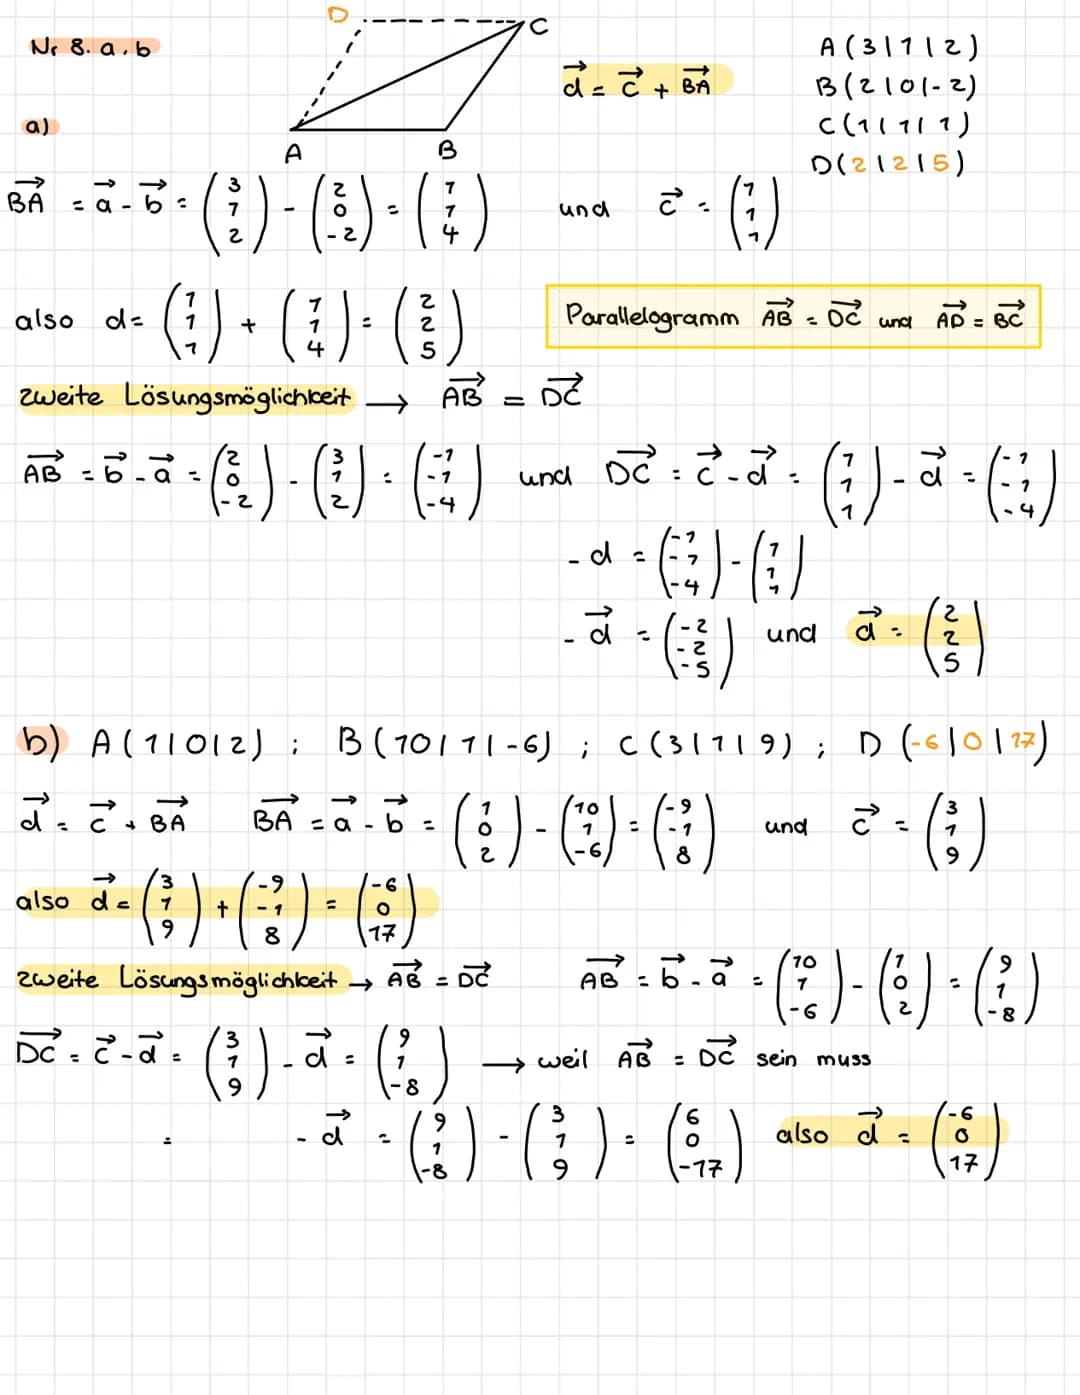 D C
Nr 8. a. b
A (3|1|2)
d⃗ = c⃗ + BA⃗
B (2|0|-2)
C (1|1|1)
a)
A B
D (2|2|5)
BA⃗ = a⃗ - b⃗ = (3 1 2) - (2 0 -2) = (1 1 4) und c⃗ = (1 1 1)
also d = (1 1 1) + (1 1 4) = (2 2 5)
Parallelogramm AB⃗ = DC⃗ und AD⃗ = BC⃗
zweite Lösungsmöglichkeit → AB⃗ = DC⃗
AB⃗ = b⃗ - a⃗ = (2 0 -2) - (3 1 2) = (-1 -1 -4) und DC⃗ = c⃗ - d⃗ = (1 1 1) - d⃗ = (-1 -1 -4)
- d = (-1 -1 -4) - (1 1 1)
- d⃗ = (-2 -2 -5) und d⃗ = (2 2 5)
b) A (1|0|2) ; B (10|1|-6) ; C (3|1|9) ; D (-6|0|17)
d⃗ = c⃗ + BA⃗ BA⃗ = a⃗ - b⃗ = (1 0 2) - (10 1 -6) = (-9 -1 8) und c⃗ = (3 1 9)
also d⃗ = (3 1 9) + (-9 -1 8) = (-6 0 17)
zweite Lösungsmöglichkeit → AB⃗ = DC⃗ AB⃗ = b⃗ - a⃗ = (10 1 -6) - (1 0 2) = (9 1 -8)
DC⃗ = c⃗ - d⃗ = (3 1 9) - d⃗ = (9 1 -8) → weil AB⃗ = DC⃗ sein muss
= - d⃗ = (9 1 -8) - (3 1 9) = (6 0 -17) also d⃗ = (-6 0 17)